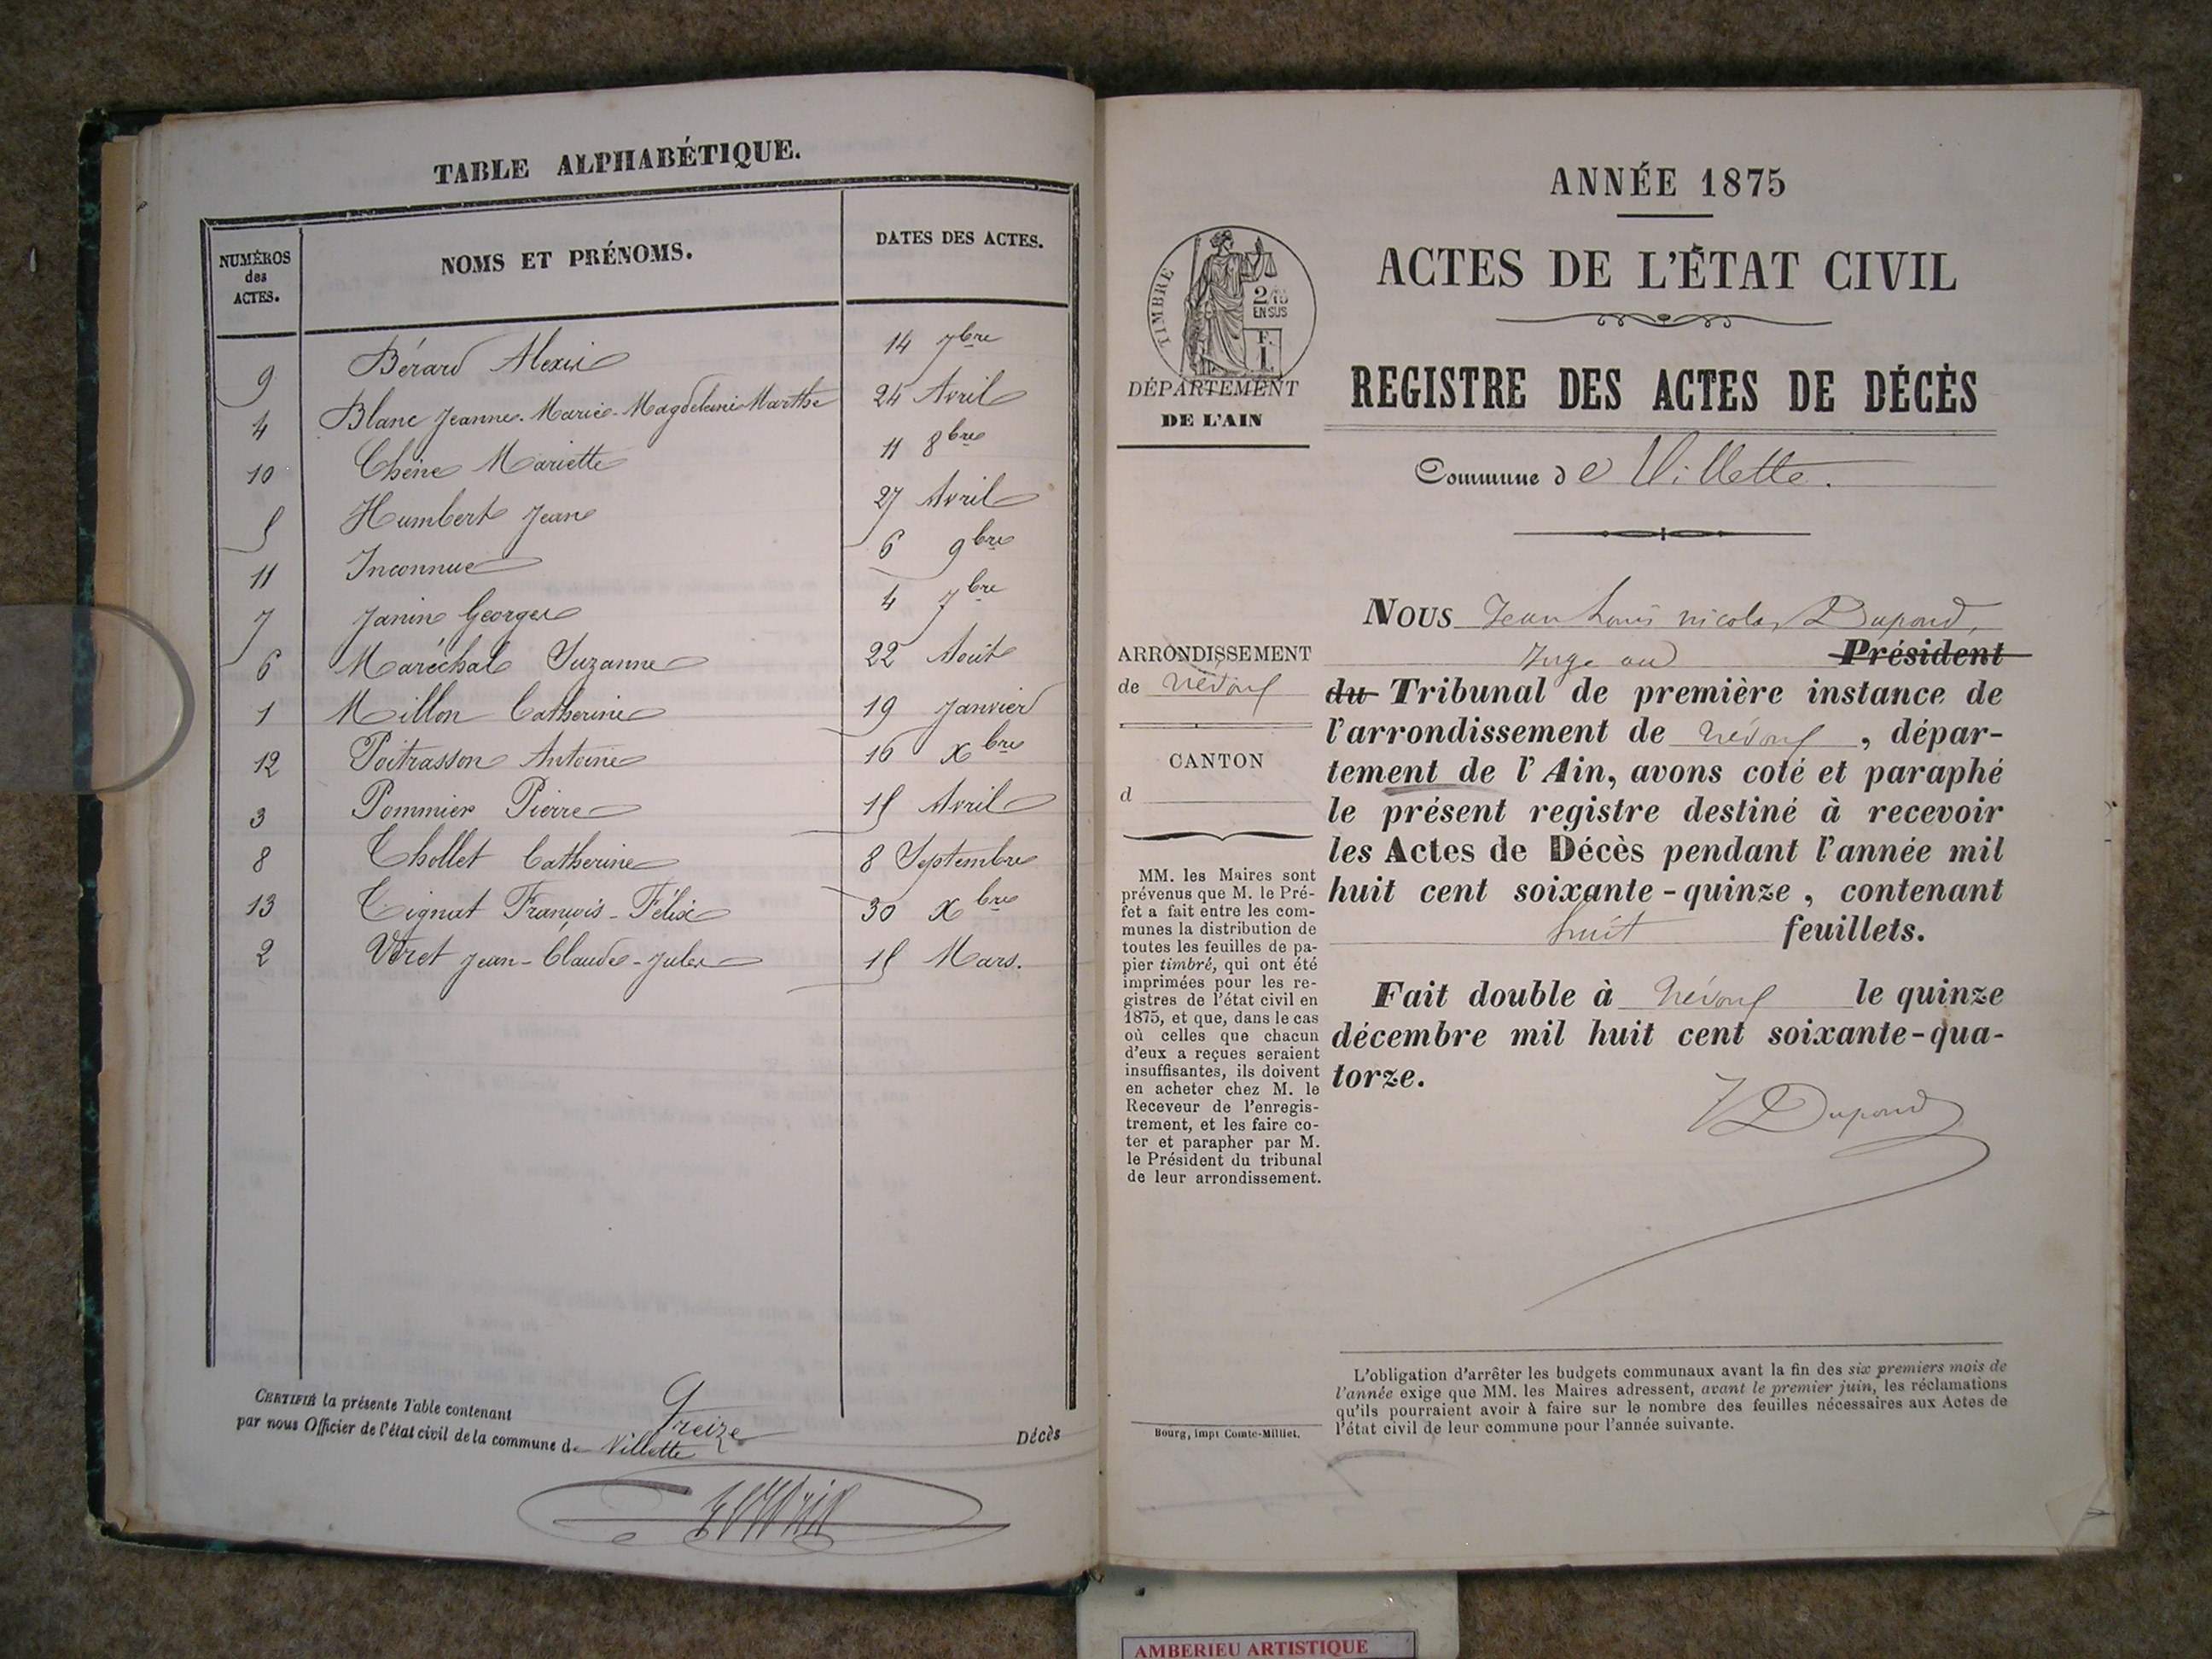 TABLE ALPHABÉTIQUE.
NUMÉROS des ACTES. NOMS ET PRÉNOMS. DATES DES ACTES.
9 Bérard Alexis 14 7bre
4 Blanc Jeanne-Marie-Magdeleine Marthe 24 Avril
10 Chêne Mariette 11 8bre
5 Humbert Jean 27 Avril
11 Inconnue 6 9bre
7 Janin Georges 4 7bre
6 Maréchal Suzanne 22 Août
1 Millon Catherine 19 Janvier
12 Poitrasson Antoine 16 Xbre
3 Pommier Pierre 15 Avril
8 Chollet Catherine 8 Septembre
13 Tignat François-Félix 30 Xbre
2 Viret Jean-Claude-Jules 15 Mars.
CERTIFIÉ la présente Table contenant Treize Décès
par nous Officier de l'état civil de la commune de Villette
ANNÉE 1875
ACTES DE L'ÉTAT CIVIL
REGISTRE DES ACTES DE DÉCÈS
Commune de Villette.
TIMBRE
2/10
EN SUS
F.
1
DÉPARTEMENT
DE L'AIN
ARRONDISSEMENT
de Trévoux
CANTON
d
MM. les Maires sont
prévenus que M. le Pré-
fet a fait entre les com-
munes la distribution de
toutes les feuilles de pa-
pier timbré, qui ont été
imprimées pour les re-
gistres de l'état civil en
1875, et que, dans le cas
où celles que chacun
d'eux a reçues seraient
insuffisantes, ils doivent
en acheter chez M. le
Receveur de l'enregis-
trement, et les faire co-
ter et parapher par M.
le Président du tribunal
de leur arrondissement.
Bourg, impr Comte-Milliet.
NOUS Jean Louis Nicolas Dupond,
Juge au Président
du Tribunal de première instance de
l'arrondissement de Trévoux, dépar-
tement de l'Ain, avons coté et paraphé
le présent registre destiné à recevoir
les Actes de Décès pendant l'année mil
huit cent soixante-quinze, contenant
huit feuillets.
Fait double à Trévoux le quinze
décembre mil huit cent soixante-qua-
torze.
Dupond
L'obligation d'arrêter les budgets communaux avant la fin des six premiers mois de
l'année exige que MM. les Maires adressent, avant le premier juin, les réclamations
qu'ils pourraient avoir à faire sur le nombre des feuilles nécessaires aux Actes de
l'état civil de leur commune pour l'année suivante.
AMBERIEU ARTISTIQUE